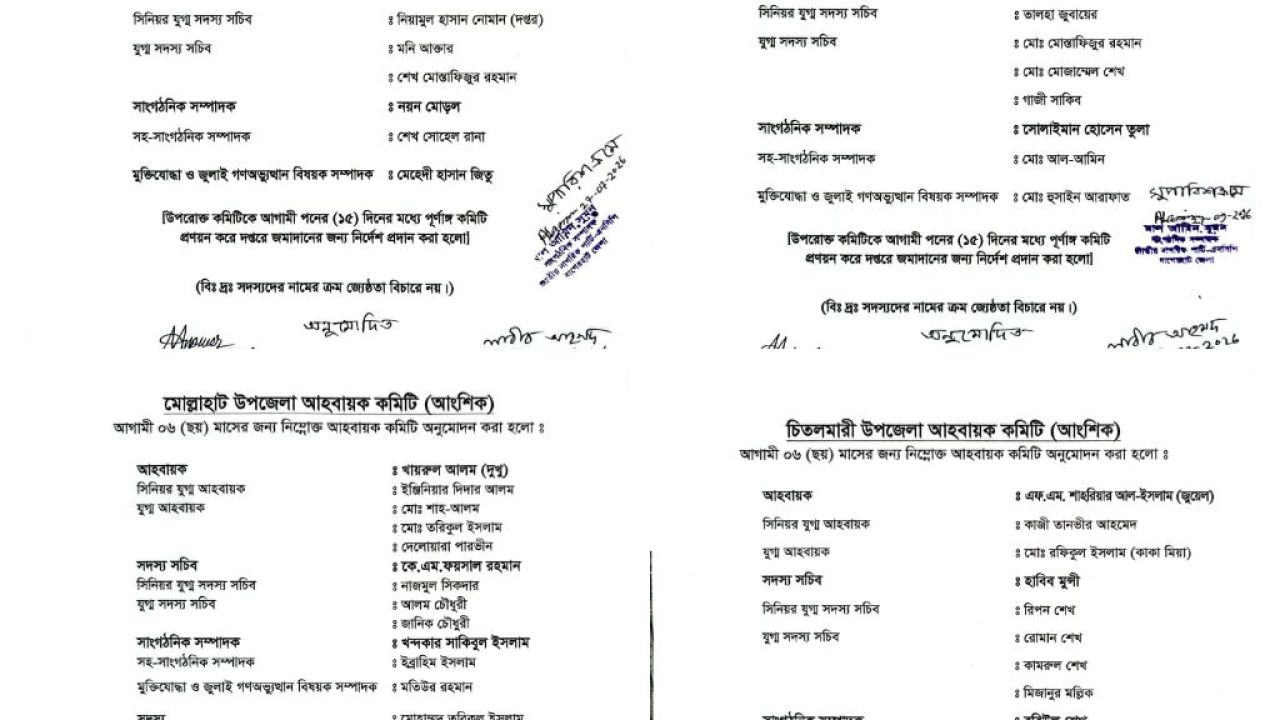 সিনিয়র যুগ্ম সদস্য সচিব ঃ নিয়ামুল হাসান নোমান (দপ্তর)
যুগ্ম সদস্য সচিব ঃ মনি আক্তার
ঃ শেখ মোস্তাফিজুর রহমান
সাংগঠনিক সম্পাদক ঃ নয়ন মোড়ল
সহ-সাংগঠনিক সম্পাদক ঃ শেখ সোহেল রানা
মুক্তিযোদ্ধা ও জুলাই গণঅভ্যুত্থান বিষয়ক সম্পাদক ঃ মেহেদী হাসান জিতু
[উপরোক্ত কমিটিকে আগামী পনের (১৫) দিনের মধ্যে পূর্ণাঙ্গ কমিটি
প্রণয়ন করে দপ্তরে জমাদানের জন্য নির্দেশ প্রদান করা হলো]
সুপারিশক্রমে
(বিঃ দ্রঃ সদস্যদের নামের ক্রম জ্যেষ্ঠতা বিচারে নয়।)
অনুমোদিত
সিনিয়র যুগ্ম সদস্য সচিব ঃ তালহা জুবায়ের
যুগ্ম সদস্য সচিব ঃ মোঃ মোস্তাফিজুর রহমান
ঃ মোঃ মোজাম্মেল শেখ
ঃ গাজী সাকিব
সাংগঠনিক সম্পাদক ঃ সোলাইমান হোসেন তুলা
সহ-সাংগঠনিক সম্পাদক ঃ মোঃ আল-আমিন
মুক্তিযোদ্ধা ও জুলাই গণঅভ্যুত্থান বিষয়ক সম্পাদক ঃ মোঃ হুসাইন আরাফাত
সুপারিশক্রমে
[উপরোক্ত কমিটিকে আগামী পনের (১৫) দিনের মধ্যে পূর্ণাঙ্গ কমিটি
প্রণয়ন করে দপ্তরে জমাদানের জন্য নির্দেশ প্রদান করা হলো]
(বিঃ দ্রঃ সদস্যদের নামের ক্রম জ্যেষ্ঠতা বিচারে নয়।)
অনুমোদিত
মোল্লাহাট উপজেলা আহবায়ক কমিটি (আংশিক)
আগামী ০৬ (ছয়) মাসের জন্য নিম্নোক্ত আহবায়ক কমিটি অনুমোদন করা হলো ঃ
আহবায়ক ঃ খায়রুল আলম (দুখু)
সিনিয়র যুগ্ম আহবায়ক ঃ ইঞ্জিনিয়ার দিদার আলম
যুগ্ম আহবায়ক ঃ মোঃ শাহ-আলম
ঃ মোঃ তরিকুল ইসলাম
ঃ দেলোয়ারা পারভীন
সদস্য সচিব ঃ কে.এম.ফয়সাল রহমান
সিনিয়র যুগ্ম সদস্য সচিব ঃ নাজমুল সিকদার
যুগ্ম সদস্য সচিব ঃ আলম চৌধুরী
ঃ জানিক চৌধুরী
সাংগঠনিক সম্পাদক ঃ খন্দকার সাকিবুল ইসলাম
সহ-সাংগঠনিক সম্পাদক ঃ ইব্রাহিম ইসলাম
মুক্তিযোদ্ধা ও জুলাই গণঅভ্যুত্থান বিষয়ক সম্পাদক ঃ মতিউর রহমান
সদস্য ঃ মোহাম্মদ তরিকুল ইসলাম
চিতলমারী উপজেলা আহবায়ক কমিটি (আংশিক)
আগামী ০৬ (ছয়) মাসের জন্য নিম্নোক্ত আহবায়ক কমিটি অনুমোদন করা হলো ঃ
আহবায়ক ঃ এফ.এম. শাহরিয়ার আল-ইসলাম (জুয়েল)
সিনিয়র যুগ্ম আহবায়ক ঃ কাজী তানভীর আহমেদ
যুগ্ম আহবায়ক ঃ মোঃ রফিকুল ইসলাম (কাকা মিয়া)
সদস্য সচিব ঃ হাবিব মুন্সী
সিনিয়র যুগ্ম সদস্য সচিব ঃ রিপন শেখ
যুগ্ম সদস্য সচিব ঃ রোমান শেখ
ঃ কামরুল শেখ
ঃ মিজানুর মল্লিক
সাংগঠনিক সম্পাদক